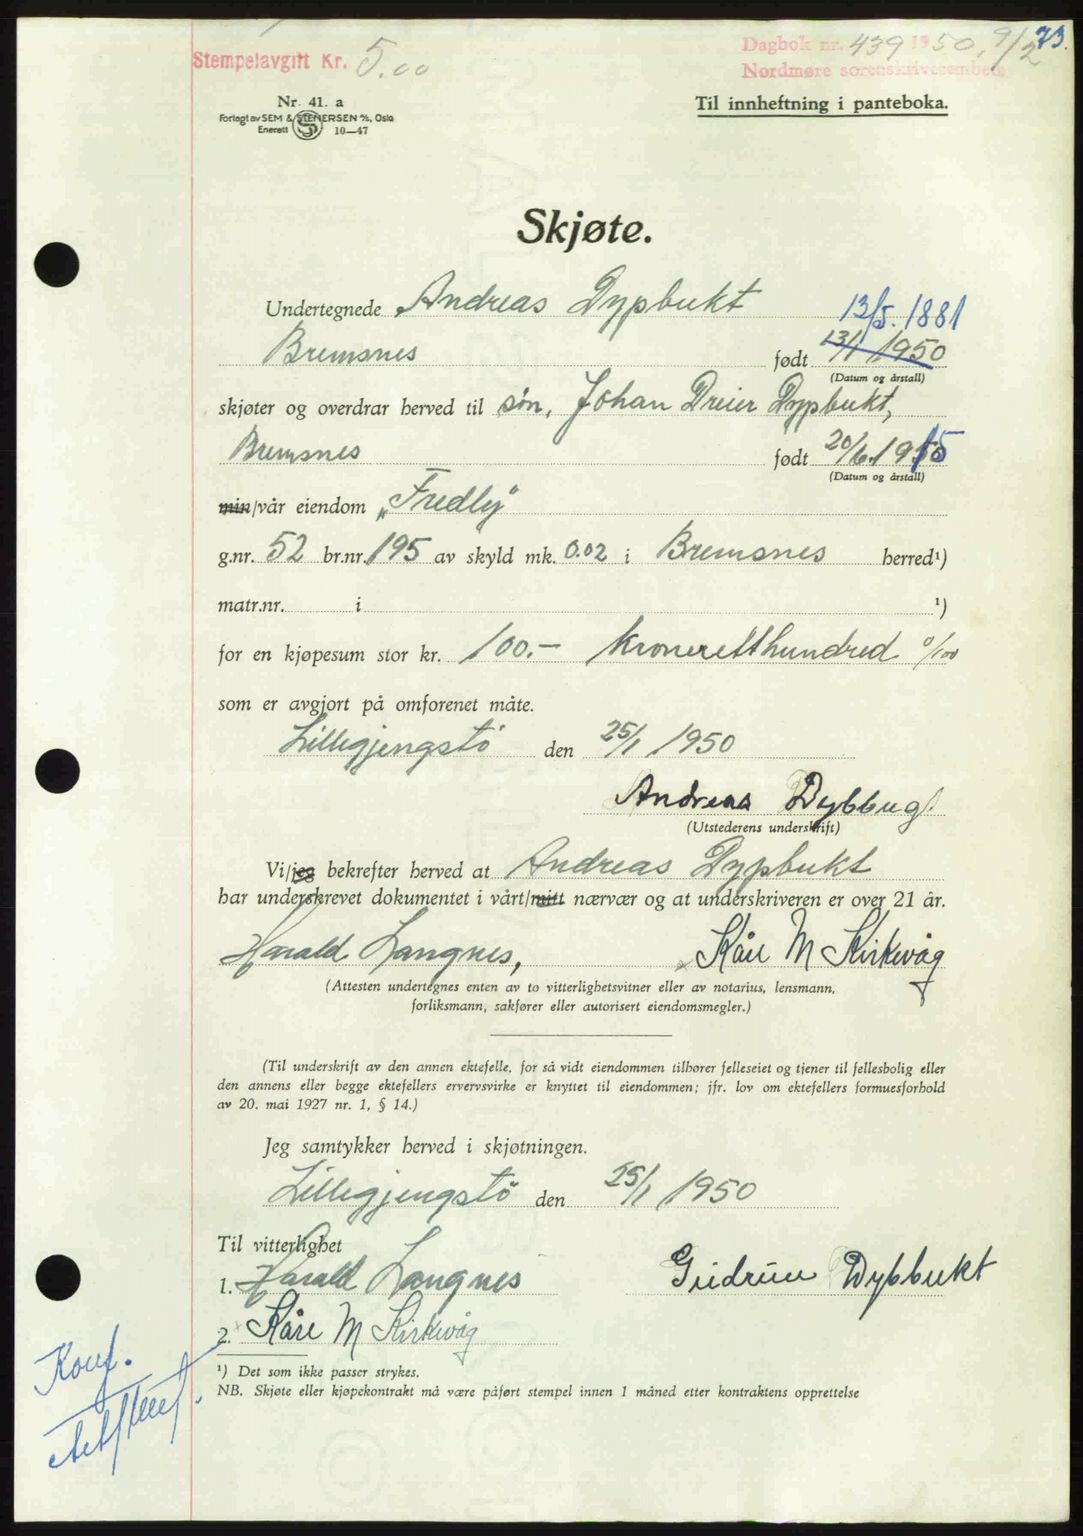 Stempelavgift Kr. 5.00
Dagbok nr. 439 1950, 9/2 73.
Nordmøre sorenskriverembete
Nr. 41. a
Forlagt av SEM & STENERSEN A/S, Oslo
Enerett 10—47
Til innheftning i panteboka.
Skjøte.
Undertegnede Andreas Dypbukt 13/5. 1881
Bremsnes født 13/1 1950
(Datum og årstall)
skjøter og overdrar herved til søn, Johan Dreier Dypbukt,
Bremsnes født 20/6. 1915
(Datum og årstall)
min/vår eiendom „Fredly"
g.nr. 52 br.nr. 195 av skyld mk. 0.02 i Bremsnes herred¹)
matr.nr. i ¹)
for en kjøpesum stor kr. 100.- kroneretthundred 0/100
som er avgjort på omforenet måte.
Lillegjengstö den 25/1 1950
Andreas Dybbugt
(Utstederens underskrift)
Vi/jeg bekrefter herved at Andreas Dypbukt
har underskrevet dokumentet i vårt/mitt nærvær og at underskriveren er over 21 år.
Harald Langnes, Kåre M Kirkevåg
(Attesten undertegnes enten av to vitterlighetsvitner eller av notarius, lensmann,
forliksmann, sakfører eller autorisert eiendomsmegler.)
(Til underskrift av den annen ektefelle, for så vidt eiendommen tilhører felleseiet og tjener til fellesbolig eller
den annens eller begge ektefellers ervervsvirke er knyttet til eiendommen; jfr. lov om ektefellers formuesforhold
av 20. mai 1927 nr. 1, § 14.)
Jeg samtykker herved i skjøtningen.
Lillegjengstö den 25/1 1950
Til vitterlighet
1. Harald Langnes Gudrun Dybbukt
2. Kåre M Kirkevåg
¹) Det som ikke passer strykes.
NB. Skjøte eller kjøpekontrakt må være påført stempel innen 1 måned etter kontraktens opprettelse
Konf.